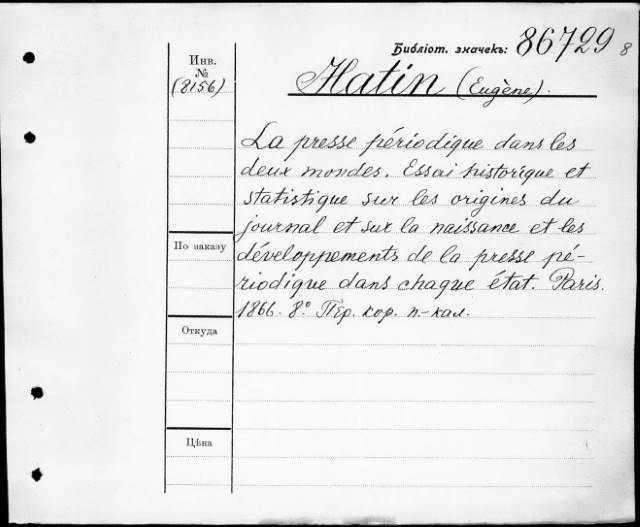 Библіот. значекъ: 86729 8
Инв.
№
(8156)
Hatin (Eugène).
La presse périodique dans les
deux mondes. Essai historique et
statistique sur les origines du
journal et sur la naissance et les
développements de la presse pé-
riodique dans chaque état. Paris.
1866. 8° Пер. кор. п-кал.
По заказу
Откуда
Цѣна